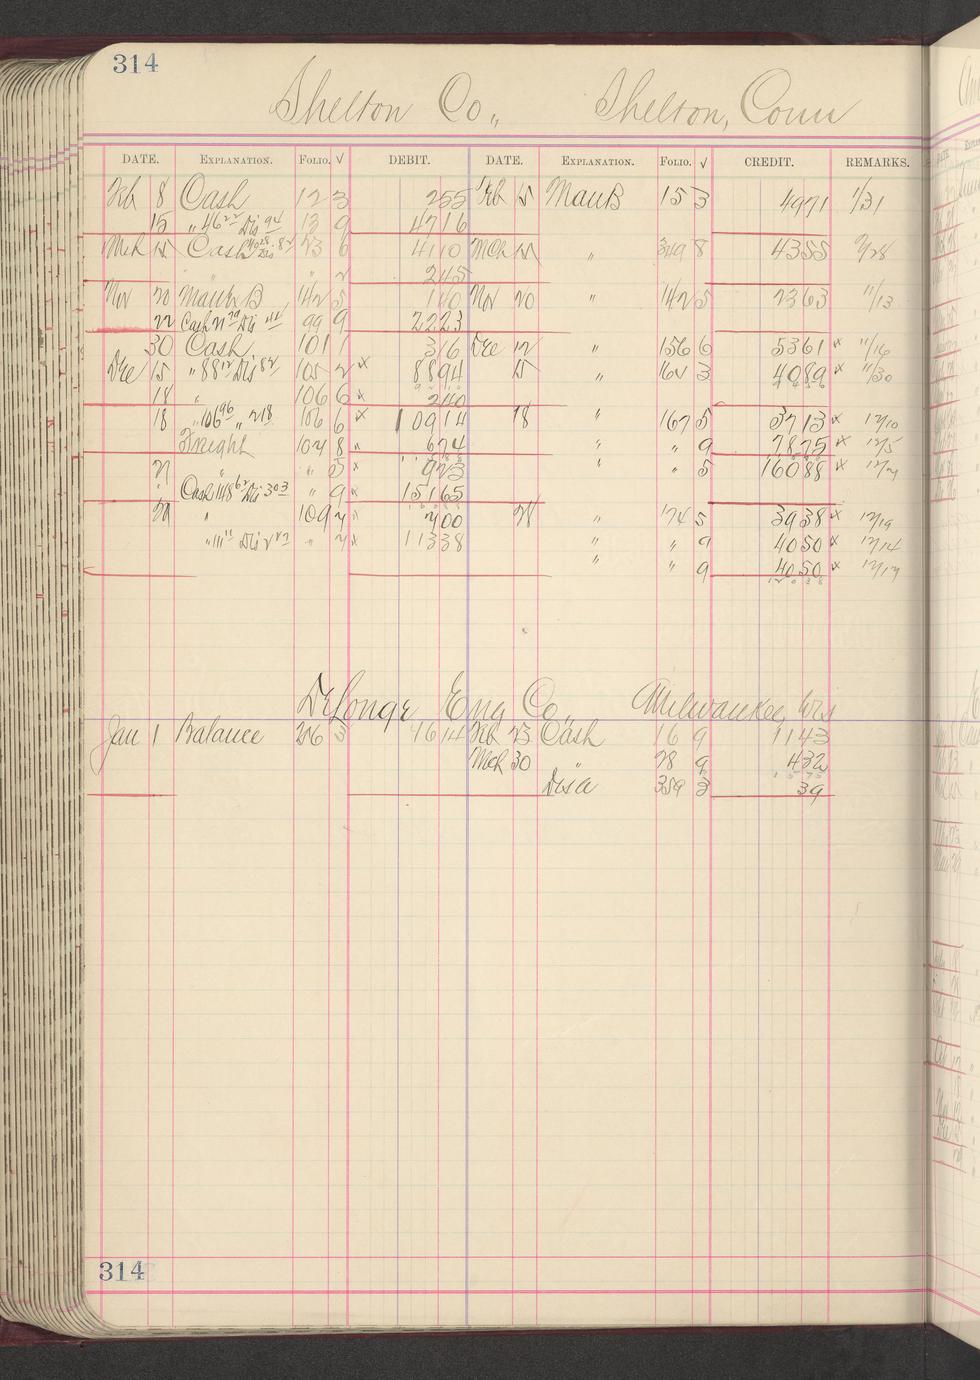 314
Shelton Co., Shelton, Conn
DATE. EXPLANATION. FOLIO. √ DEBIT. DATE. EXPLANATION. FOLIO. √ CREDIT. REMARKS.
Feb 8 Cash 12 3 255 Feb 15 ManB 15 3 4971 1/31
15 " 46 22 Dis 94 13 9 4716
Mch 15 Cash 40 28 Dis 82 23 6 4110 Mch 15 " 349 8 4355 2/28
" " 2 245
Nov 20 B 142 5 140 Nov 20 " 142 5 2363 11/13
22 Cash 21 79 Dis 44 99 9 2223
30 Cash 101 1 316 Dec 12 " 156 6 5361 x 11/16
Dec 15 " 88 12 Dis 82 105 2 x 8894 15 " 164 3 4089 x 11/30
18 " 106 6 x 240
18 " 106 96 " 2 18 106 6 x 10914 18 " 167 5 3713 x 12/10
Freight 104 8 " 674 " " 9 7875 x 12/5
21 " " 5 x 923 " " 5 16088 x 12/7
" Cash 148 62 Dis 303 " 9 x 15165
29 " 109 7 " 700 28 " 174 5 3938 x 12/19
" 111 11 Dis 2 27 " 7 x 11338 " " 9 4050 x 12/14
" " 9 4050 x 12/17
DeLonge Eng Co., Milwaukee, Wis
Jan 1 Balance 26 3 1614 Feb 23 Cash 16 9 1143
Mch 30 " 28 9 432
Disa 359 3 39
314